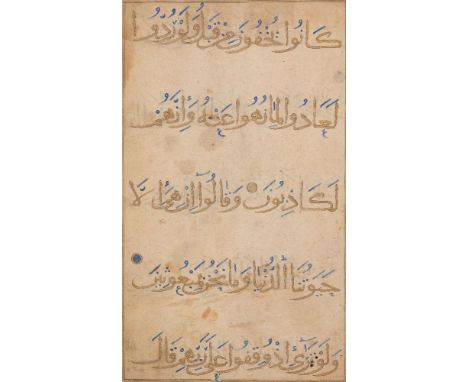 كَانُوا يُخْفُونَ مِنْ قَبْلُ وَلَوْ رُدُّوا
لَعَادُوا لِمَا نُهُوا عَنْهُ وَإِنَّهُمْ
لَكَاذِبُونَ وَقَالُوا إِنْ هِيَ إِلَّا
حَيَوتُنَا الدُّنْيَا وَمَا نَحْنُ بِمَبْعُوثِينَ
وَلَوْ تَرَى إِذْ وُقِفُوا عَلَى رَبِّهِمْ قَالَ